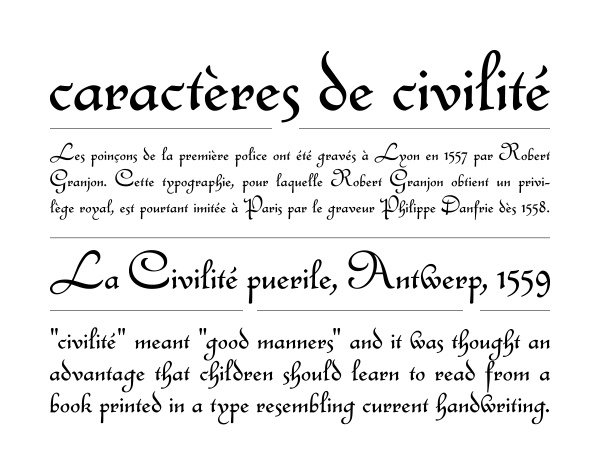 caractères de civilité
Les poinçons de la première police ont été gravés à Lyon en 1557 par Robert
Granjon. Cette typographie, pour laquelle Robert Granjon obtient un privi-
lège royal, est pourtant imitée à Paris par le graveur Philippe Danfrie dès 1558.
La Civilité puerile, Antwerp, 1559
"civilité" meant "good manners" and it was thought an
advantage that children should learn to read from a
book printed in a type resembling current handwriting.